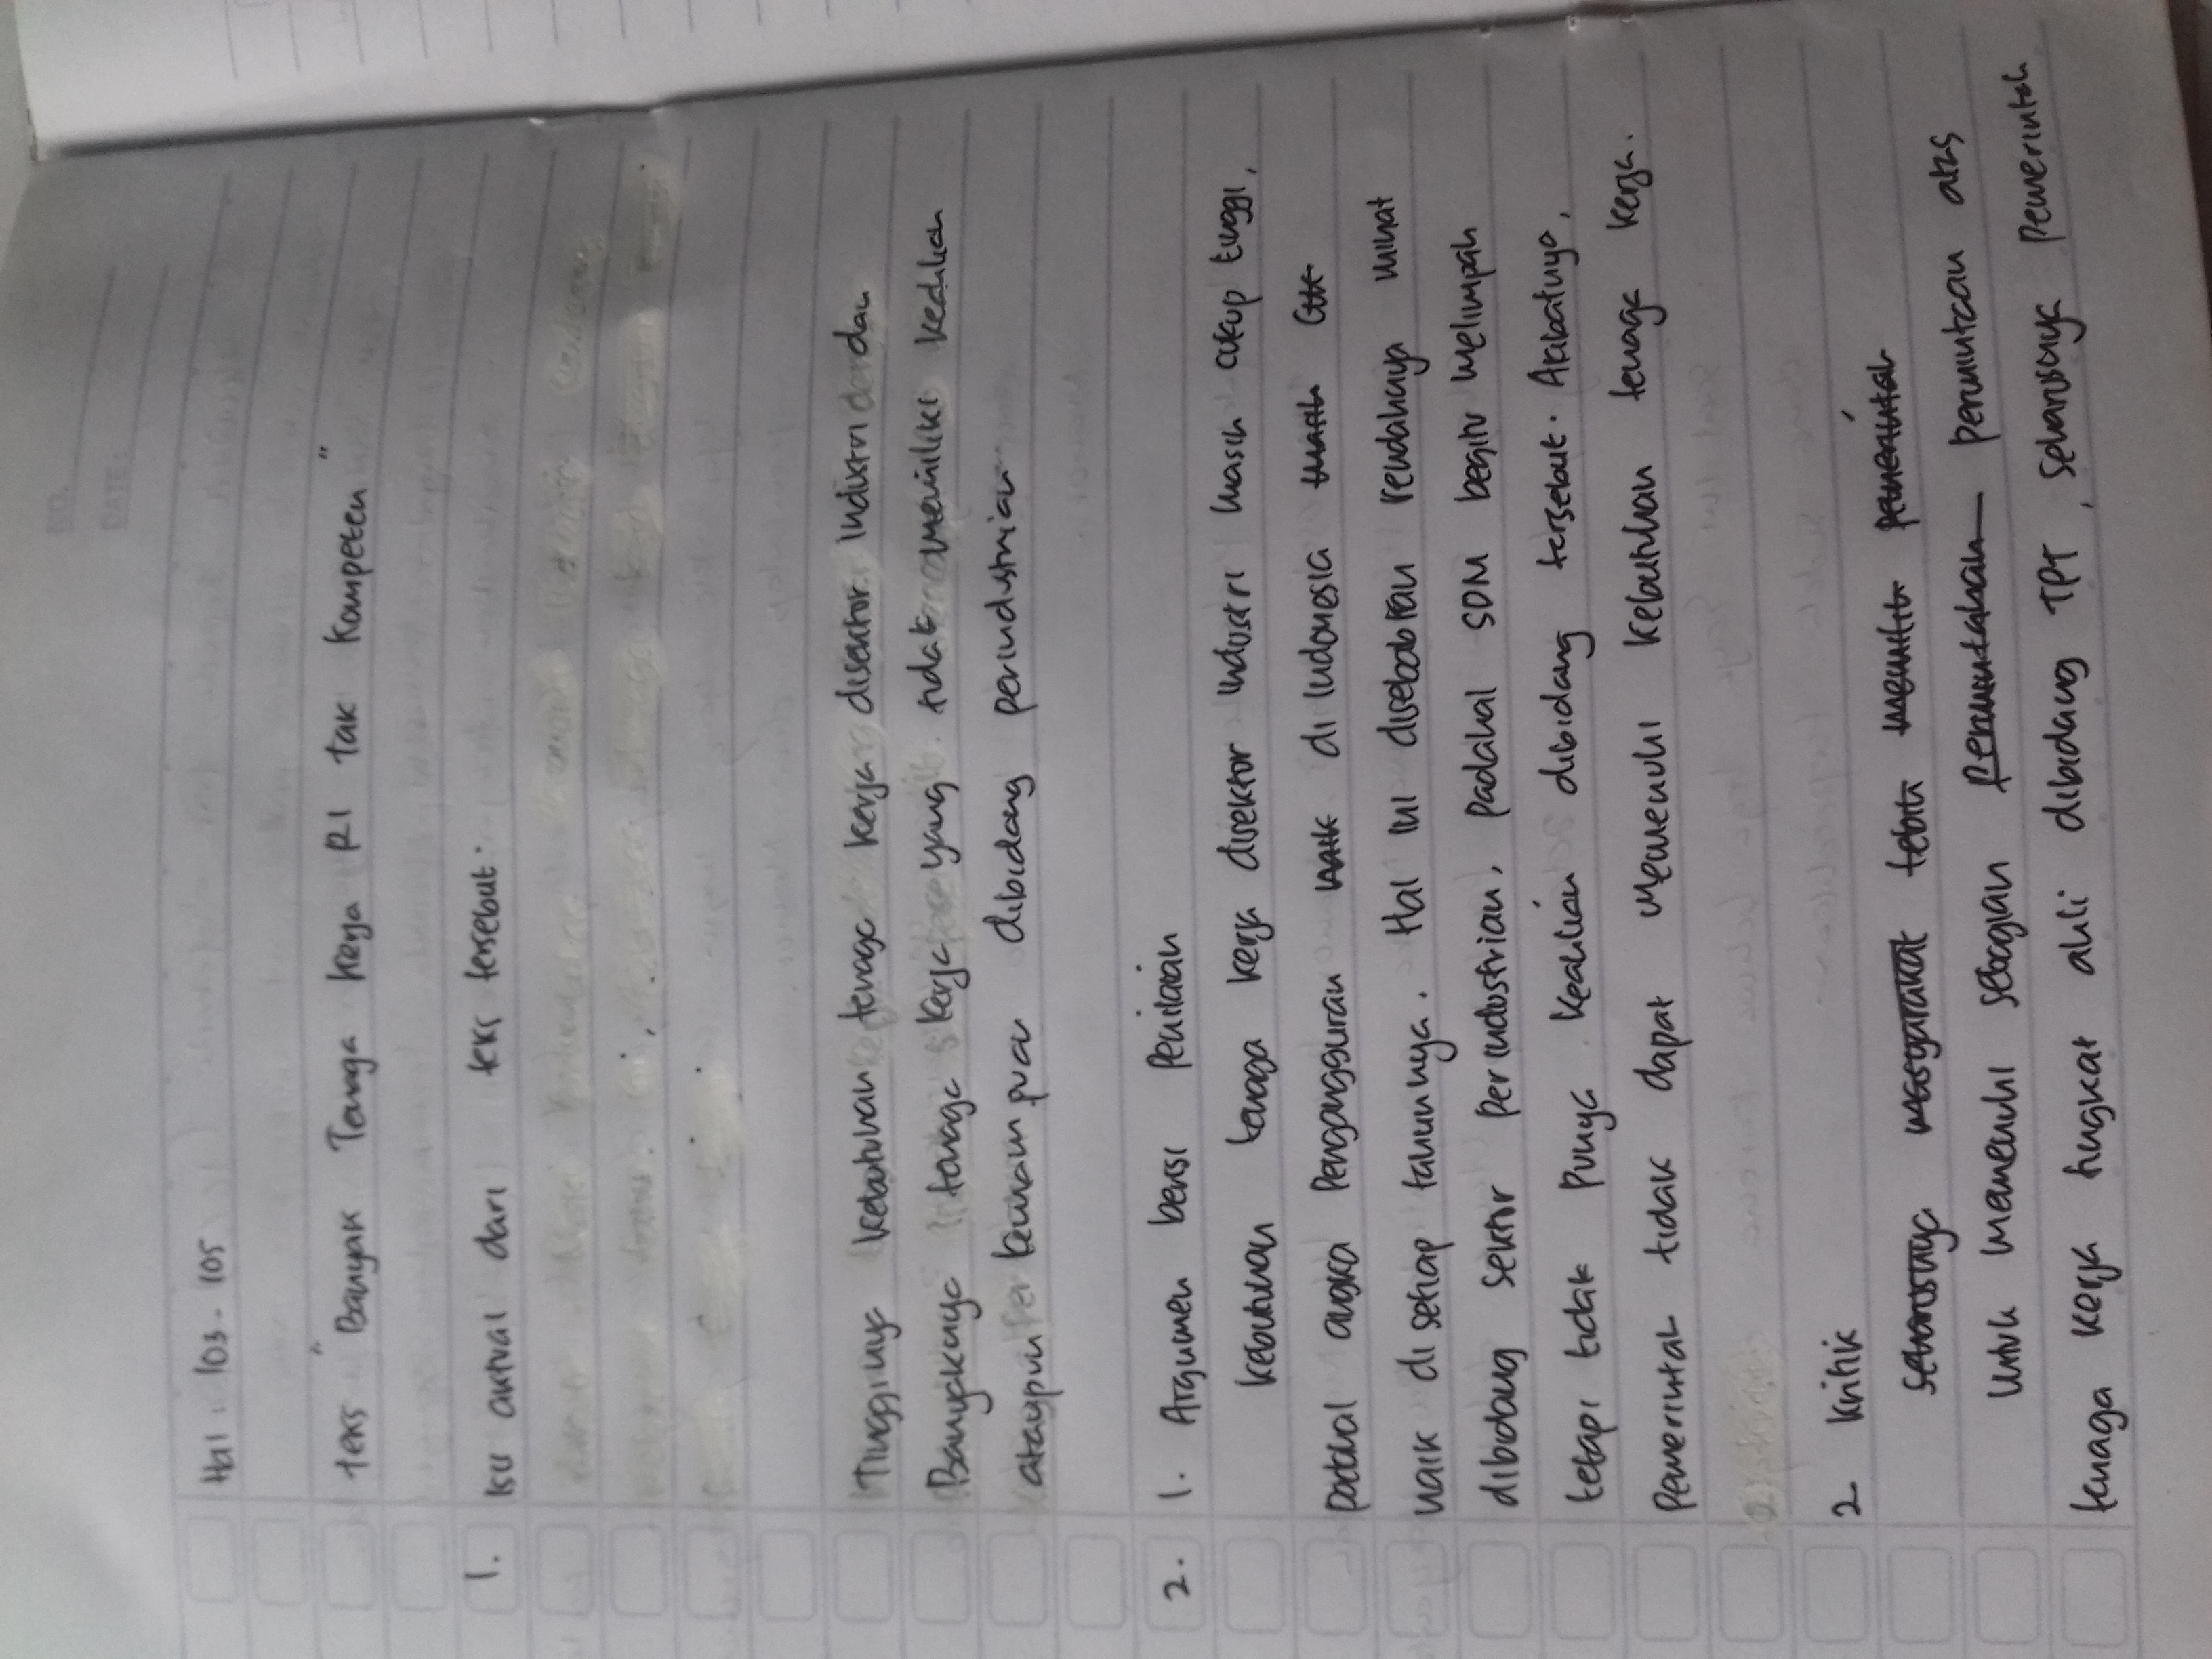 NO.
DATE:
Hal : 103 - 105
teks "Banyak Tenaga Kerja RI tak Kompeten"
1. Isu aktual dari teks tersebut.
Tingginya kebutuhan tenaga kerja disektor industri dan
Banyaknya tenaga kerja yang tidak memiliki keahlian
ataupun kemampuan dibidang perindustrian
2. 1. Argumen berisi Penilaian
kebutuhan tenaga kerja disektor industri masih cukup tinggi,
padahal angka Pengangguran naik di Indonesia masih
naik di setiap tahunnya. Hal ini disebabkan rendahnya minat
dibidang sektor perindustrian, padahal SDM begitu melimpah
tetapi tidak Punya keahlian dibidang tersebut. Akibatnya,
Pemerintah tidak dapat memenuhi kebutuhan tenaga kerja.
2 Kritik
seharusnya masyarakat lebih memilih pemerintah
Untuk memenuhi sebagian permintahan permintaan atas
tenaga kerja tingkat ahli dibidang TPT, seharusnya pemerintah